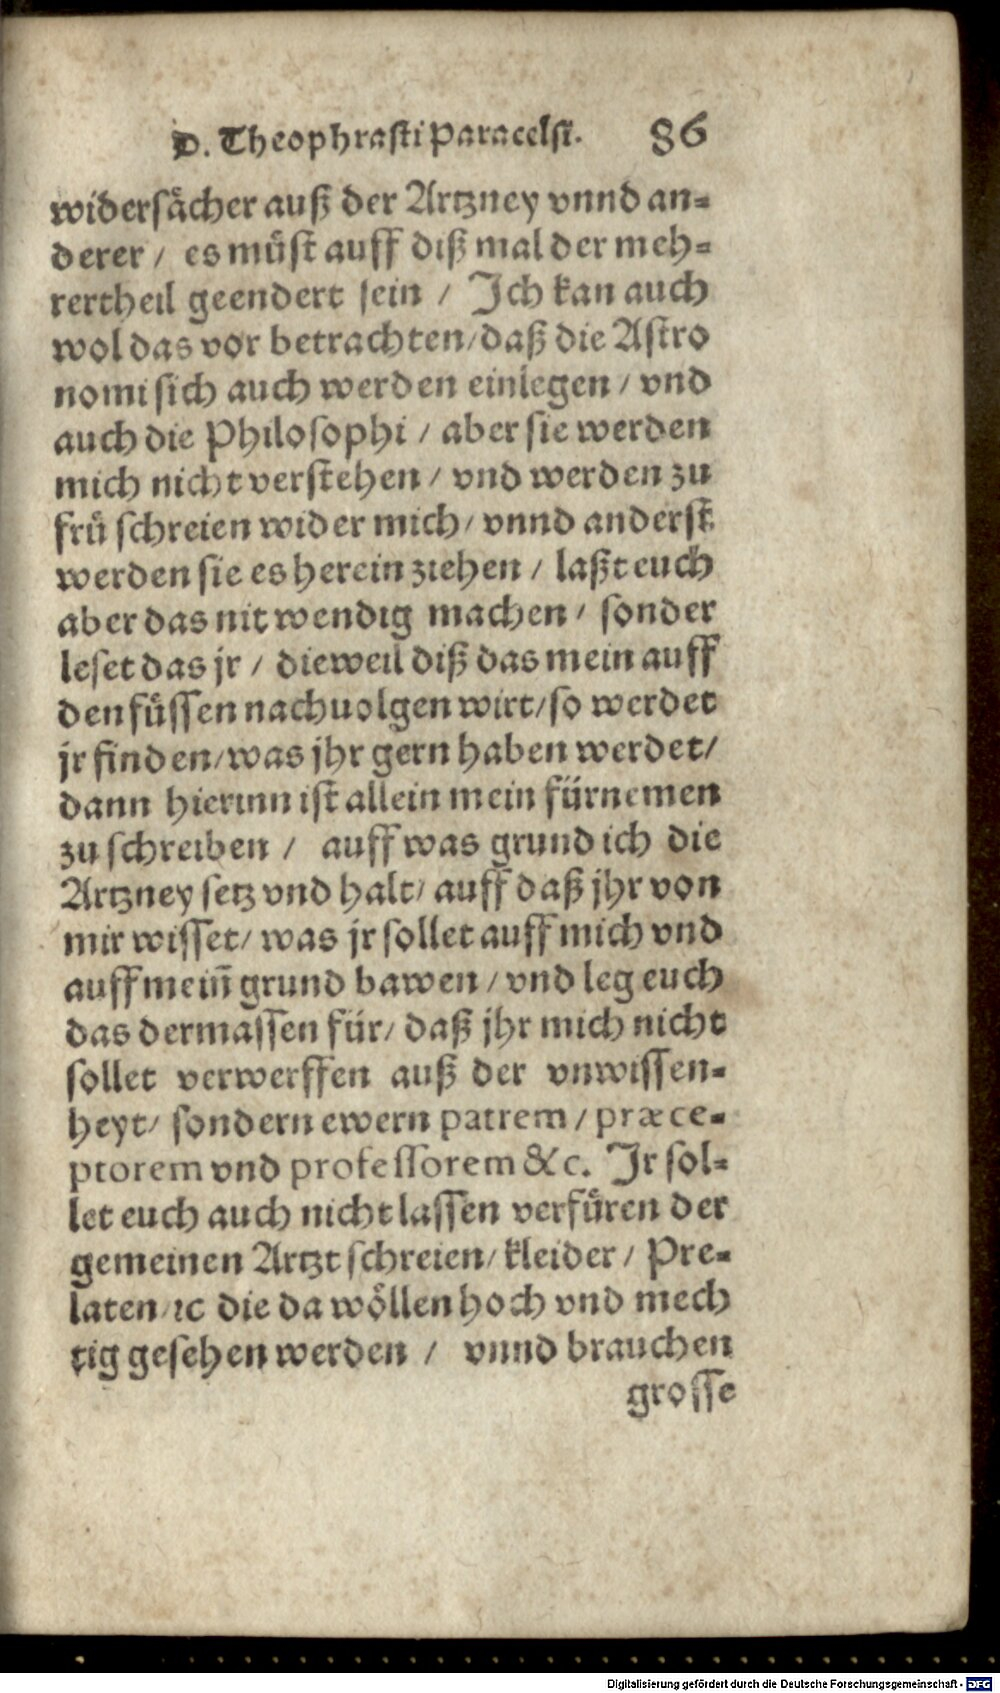 D. Theophrasti Paracelsi. 86
widersächer auß der Artzney vnnd an-
derer / es müst auff diß mal der meh-
rertheil geendert sein / Ich kan auch
wol das vor betrachten / daß die Astro
nomi sich auch werden einlegen / vnd
auch die Philosophi / aber sie werden
mich nicht verstehen / vnd werden zu
frü schreien wider mich / vnnd anderst
werden sie es herein ziehen / laßt euch
aber das nit wendig machen / sonder
leset das jr / dieweil diß das mein auff
den füssen nachuolgen wirt / so werdet
jr finden / was jhr gern haben werdet /
dann hierinn ist allein mein fürnemen
zu schreiben / auff was grund ich die
Artzney setz vnd halt / auff daß jhr von
mir wisset / was jr sollet auff mich vnd
auff mein̄ grund bawen / vnd leg euch
das dermassen für / daß jhr mich nicht
sollet verwerffen auß der vnwissen-
heyt / sondern ewern patrem / præce-
ptorem vnd professorem &c. Jr sol-
let euch auch nicht lassen verfüren der
gemeinen Artzt schreien / kleider / Pre-
laten / ꝛc die da wöllen hoch vnd mech
tig gesehen werden / vnnd brauchen
grosse
Digitalisierung gefördert durch die Deutsche Forschungsgemeinschaft - DFG